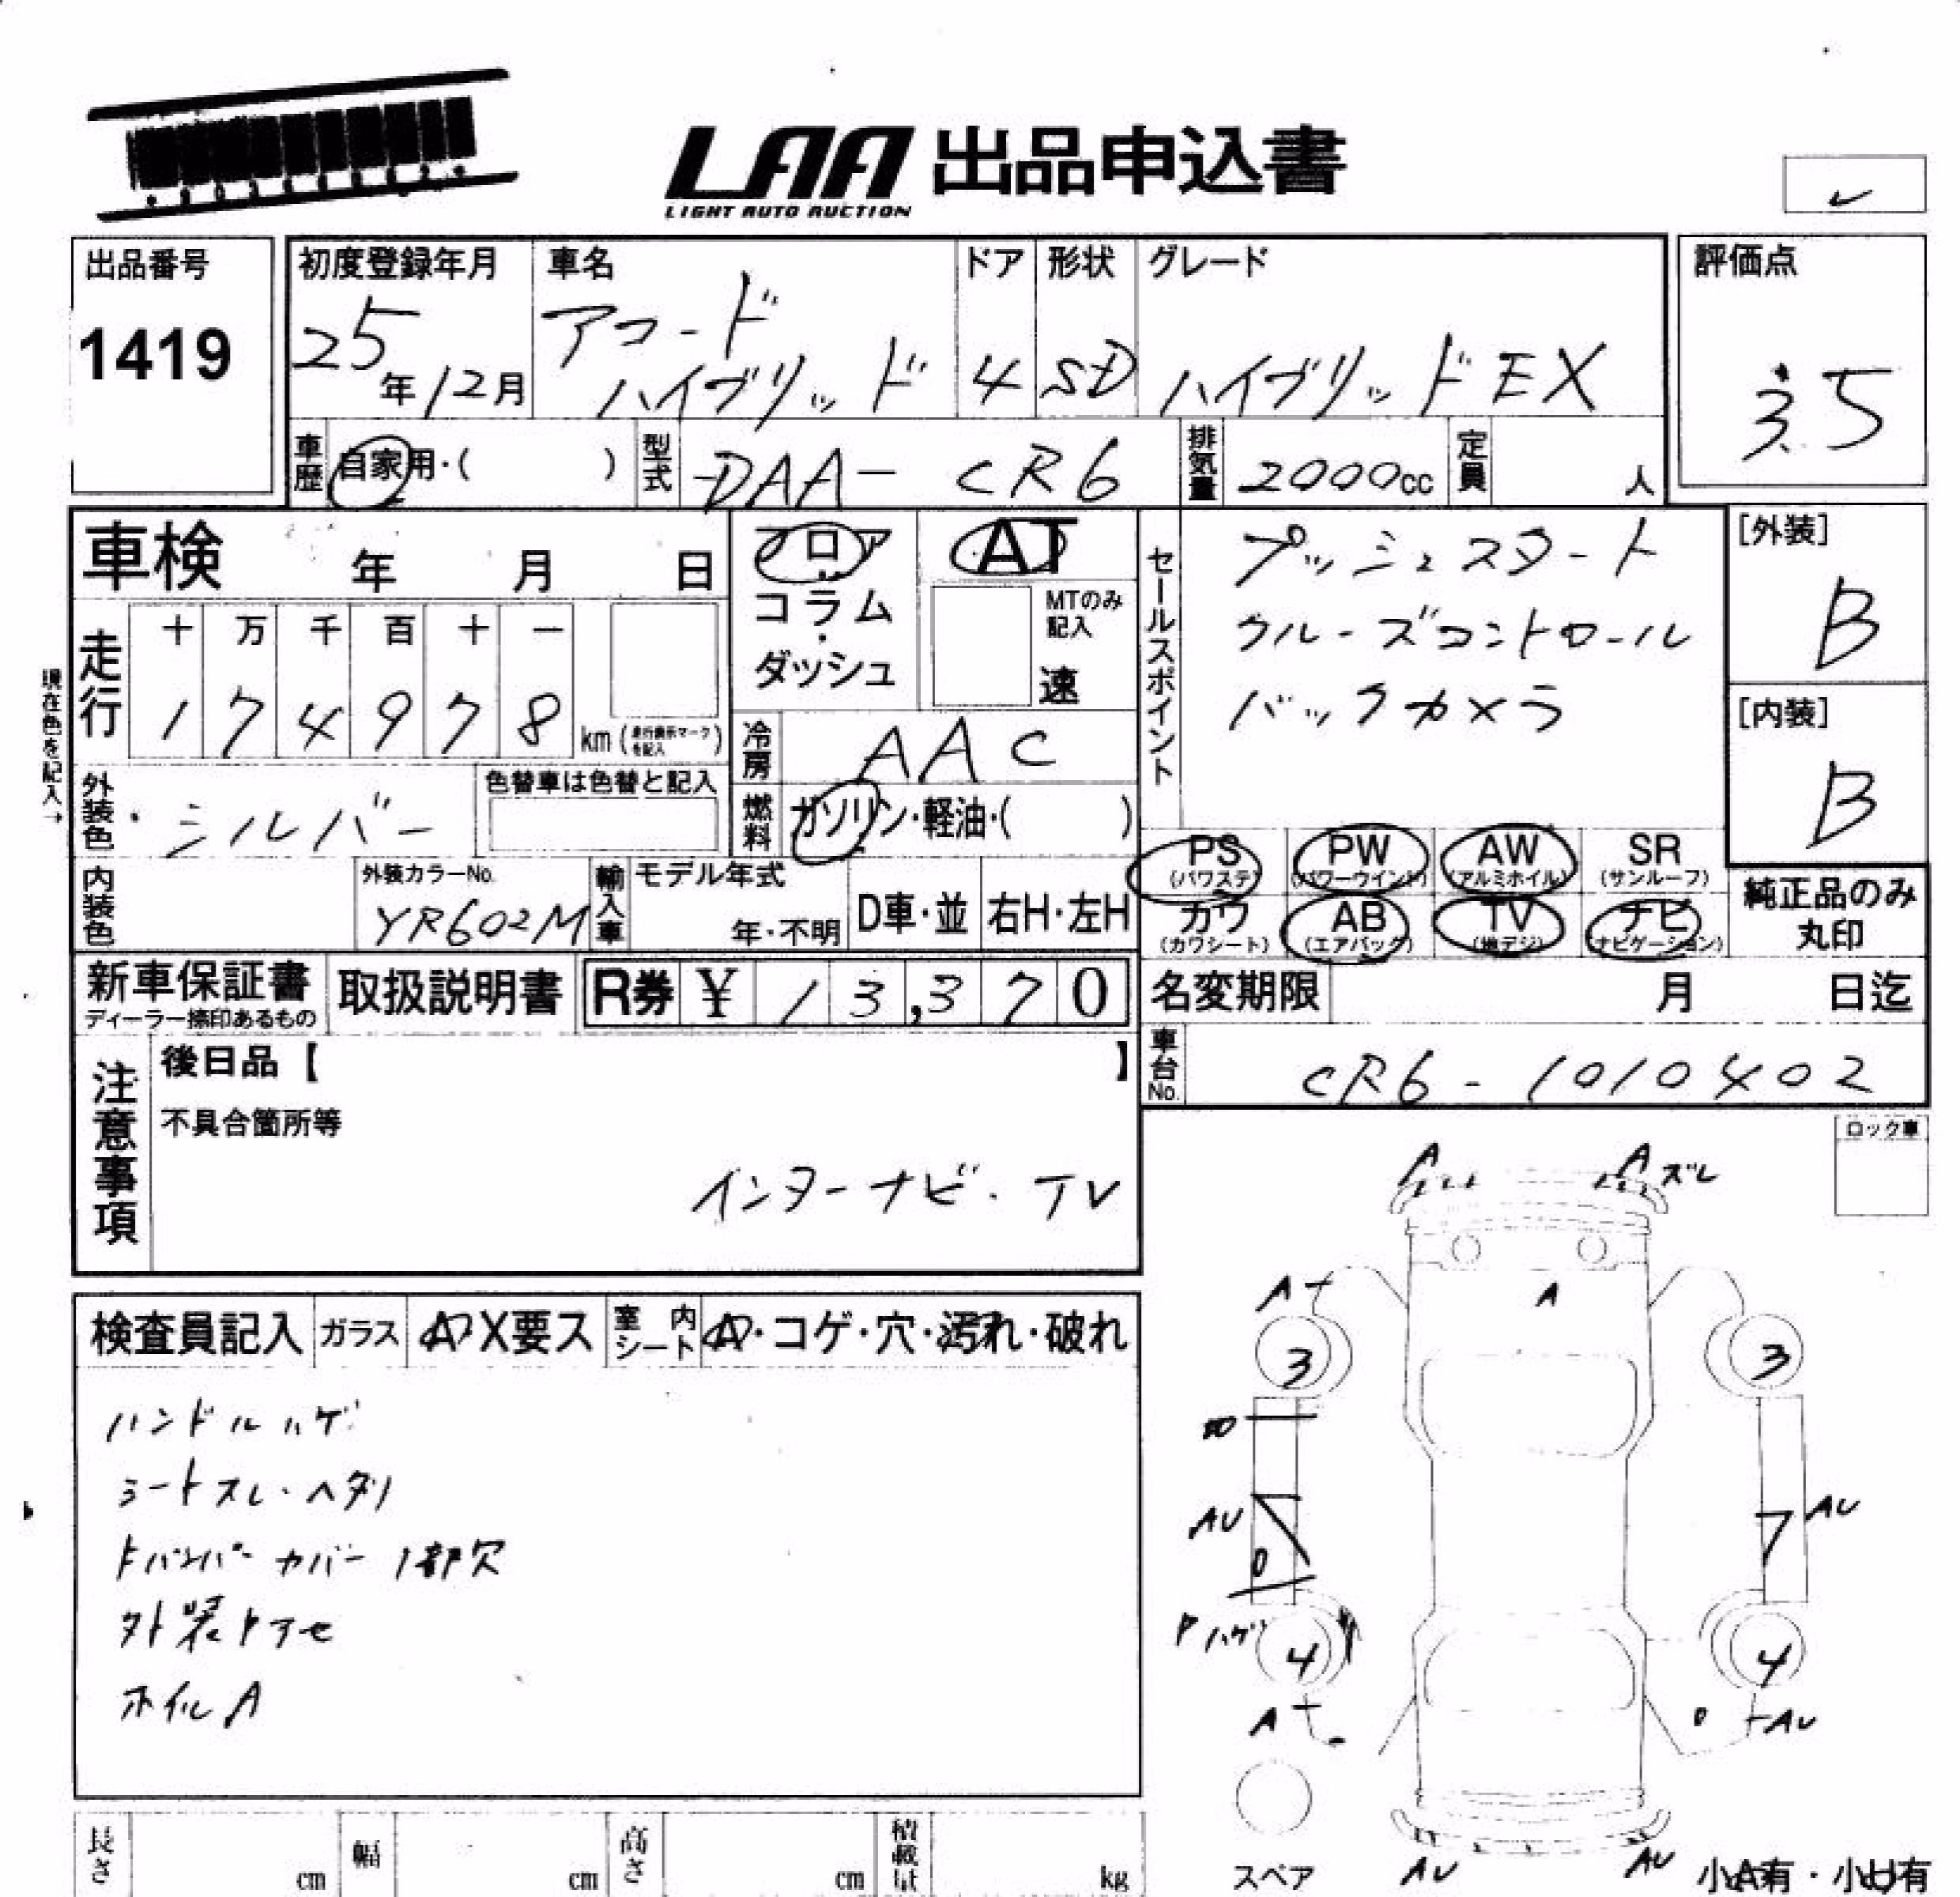 LAA 出品申込書
LIGHT AUTO AUCTION
出品番号
1419
初度登録年月
25年12月
車名
アコード
ハイブリッド
ドア
4
形状
SD
グレード
ハイブリッドEX
評価点
3.5
車歴 自家用・( )
型式 DAA-CR6
排気量 2000cc
定員 人
車検 年 月 日
フロア
コラム
・
ダッシュ
AT
MTのみ
記入
速
セールスポイント
プッシュスタート
クルーズコントロール
バックカメラ
[外装]
B
[内装]
B
現在色を記入→
走行
十 万 千 百 十 一
1 7 4 9 7 8 km (走行表示マークを記入)
冷房 AAC
外装色 ・シルバー
色替車は色替と記入
燃料 ガソリン・軽油・( )
内装色
外装カラーNo.
YR602M
輸入車
モデル年式
年・不明
D車・並
右H・左H
PS (パワステ)
PW (パワーウインド)
AW (アルミホイル)
SR (サンルーフ)
カワ (カワシート)
AB (エアバック)
TV (地デジ)
ナビ (ナビゲーション)
純正品のみ
丸印
新車保証書
ディーラー捺印あるもの
取扱説明書
R券 ¥ 13,370
名変期限 月 日迄
車台No. CR6-1010402
注意事項
後日品【 】
不具合箇所等
インターナビ・TV
ロック車
検査員記入 ガラス A・X要ス 室内シート A・コゲ・穴・汚れ・破れ
ハンドルハゲ
シートスレ・ヘタリ
FバンパーカバーI部欠
外装トアセ
ホイルA
A
A ズレ
A
A
3
3
AU
AU
ハゲ
4
4
A
AU
AU
AU
スペア
小A有・小U有
長さ cm
幅 cm
高さ cm
積載量 kg